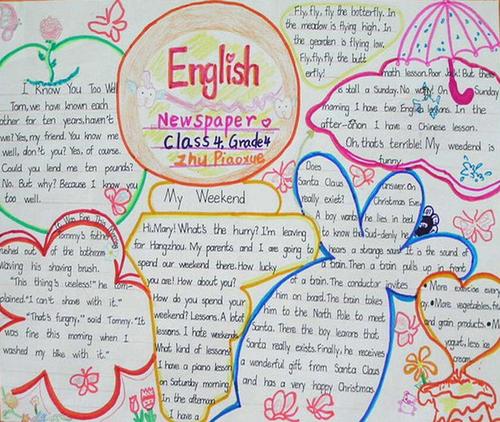 I Know You Too Well
Tom, we have known each
other for ten years, haven't
we? Yes, my friend. You know me
well, don't you? Yes, of course.
Could you lend me ten pounds?
No. But why? Because I know you
too well.
English
Newspaper
Class 4, Grade 4
Zhu Piaoxue
Fly, fly, fly the botterfly. In
the meadow is flying high. In
the gearden is flying low.
Fly, fly, fly the butt
erfly!
math lesson. Poor Jack! But there
is stall a Sunday. No worry! On Sunday
morning I have two English lessons. In the
after-noon I have a Chinese lesson.
Oh, that's terrible! My weedend is
funny.
Tommy's father
rushed out of the bathroom
waving his shaving brush.
"This thing's useless!" he com-
plained. "I can't shave with it."
"That's fungny," said Tommy. "It
was fine this morning when I
washed my bike with it."
My Weekend
Hi, Mary! What's the hurry? I'm leaving
for Hangzhou. My parents and I are going to
spend our weekend there. How lucky
you are! How about you?
How do you spend your
weekend? Lessons. A lot of
lessons. I hate weekends.
What kind of lessons
I have a piano lesson
on Saturday morning.
In the afternoon
I have a
Does
Santa Claus
really exist?
A boy wants
to know the
answer. On
Christmas Eve,
he lies in bed.
Sud-denly he
hears a strange soun. It is the sound of
a train. Then a train pulls up in front
of a train. The conductor invites
him on board. The train takes
him to the North Pole to meet
Santa. There the boy learns that
Santa really exists. Finally, he receives
a wonderful gift from Santa Claus
and has a very happy Christmas
More
every
day. More vegetables, fruit
and grain products. More
yogurt, less ice
cream.